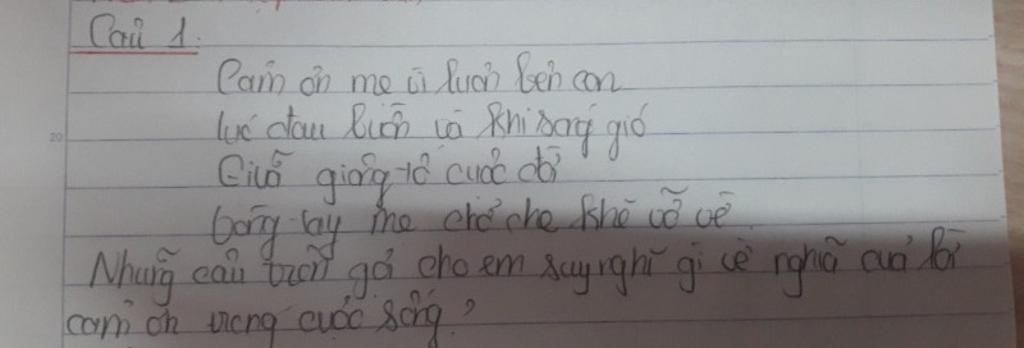 Câu 1.
Cảm ơn mẹ vì luôn bên con
lúc đau buồn và khi sóng gió
Giữa giông tố cuộc đời
Vòng tay mẹ chở che khẽ vỗ về
Những câu trên gợi cho em suy nghĩ gì về nghĩa của lời
cảm ơn trong cuộc sống?